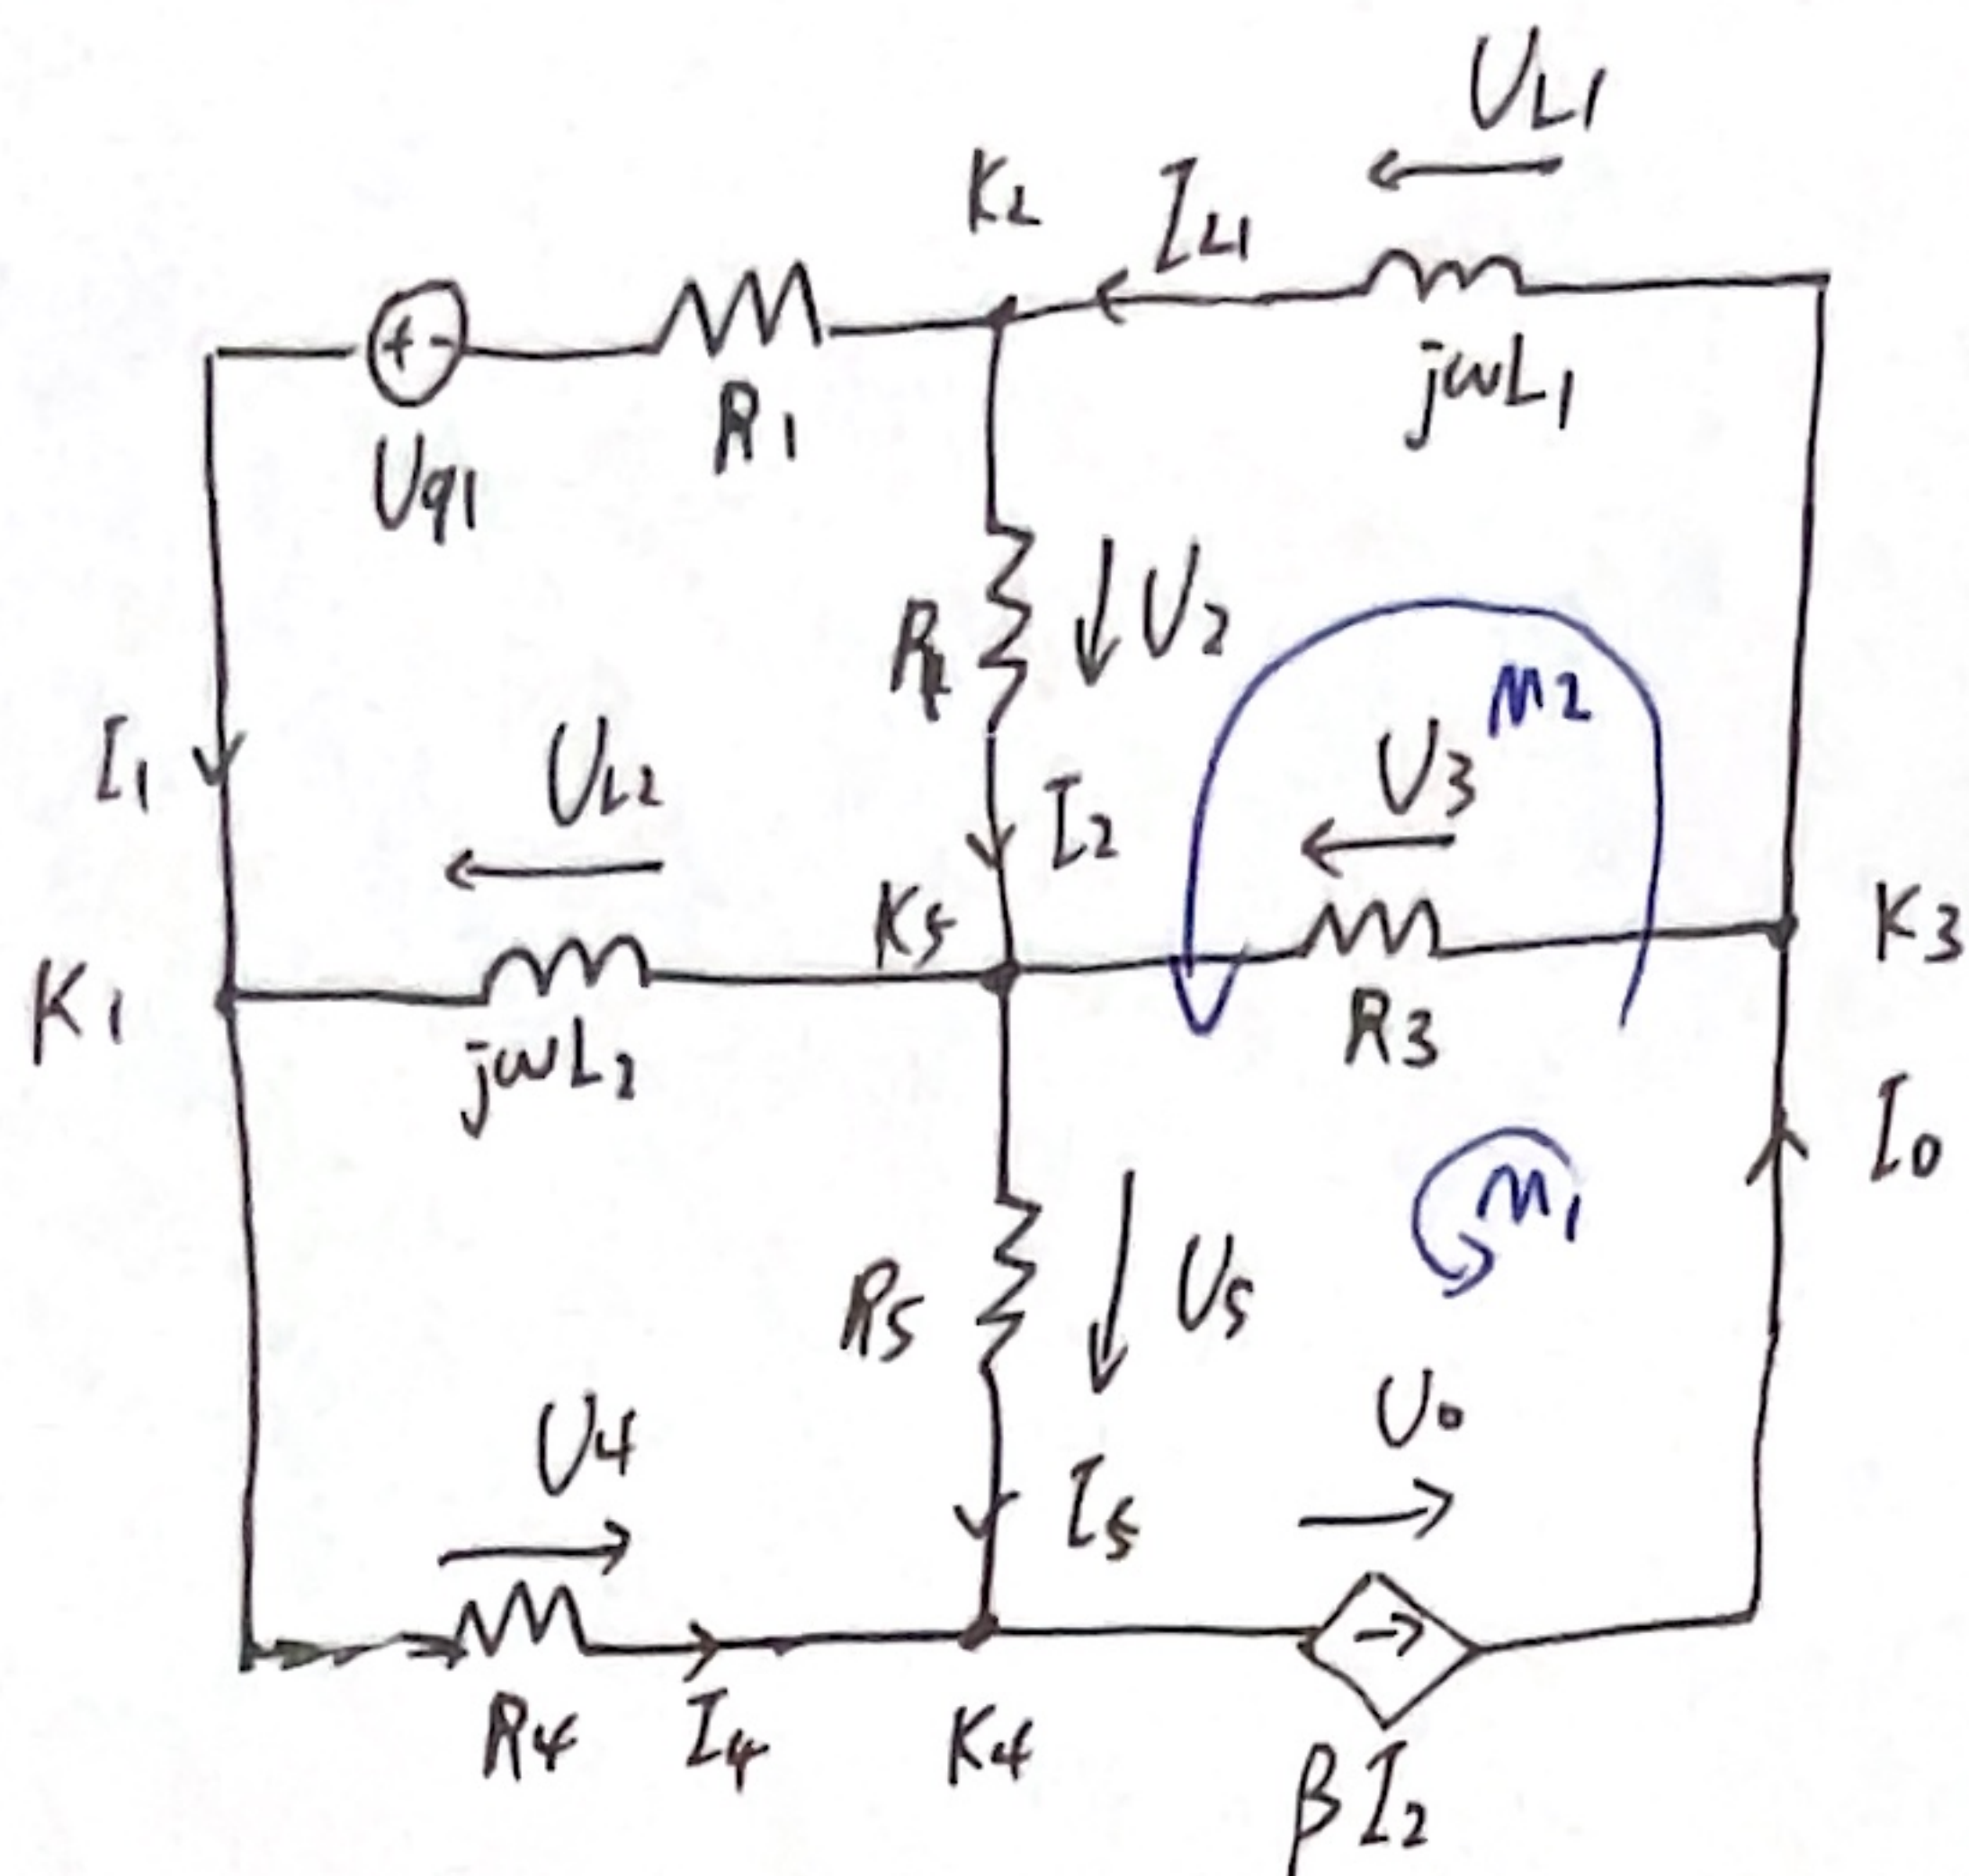 UL1
K2
IL1
+ -
R1
jωL1
Uq1
U2
M2
I1
UL2
I2
U3
K5
K3
K1
jωL2
R3
I0
M1
R5
U5
U4
U0
I5
R4
I4
K4
βI2